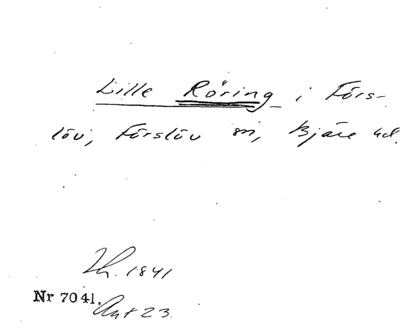 Lille Röring i Förs-
löv, Förslöv sn, Bjäre hd.
Lh. 1841
Nr 7041. Akt 23.